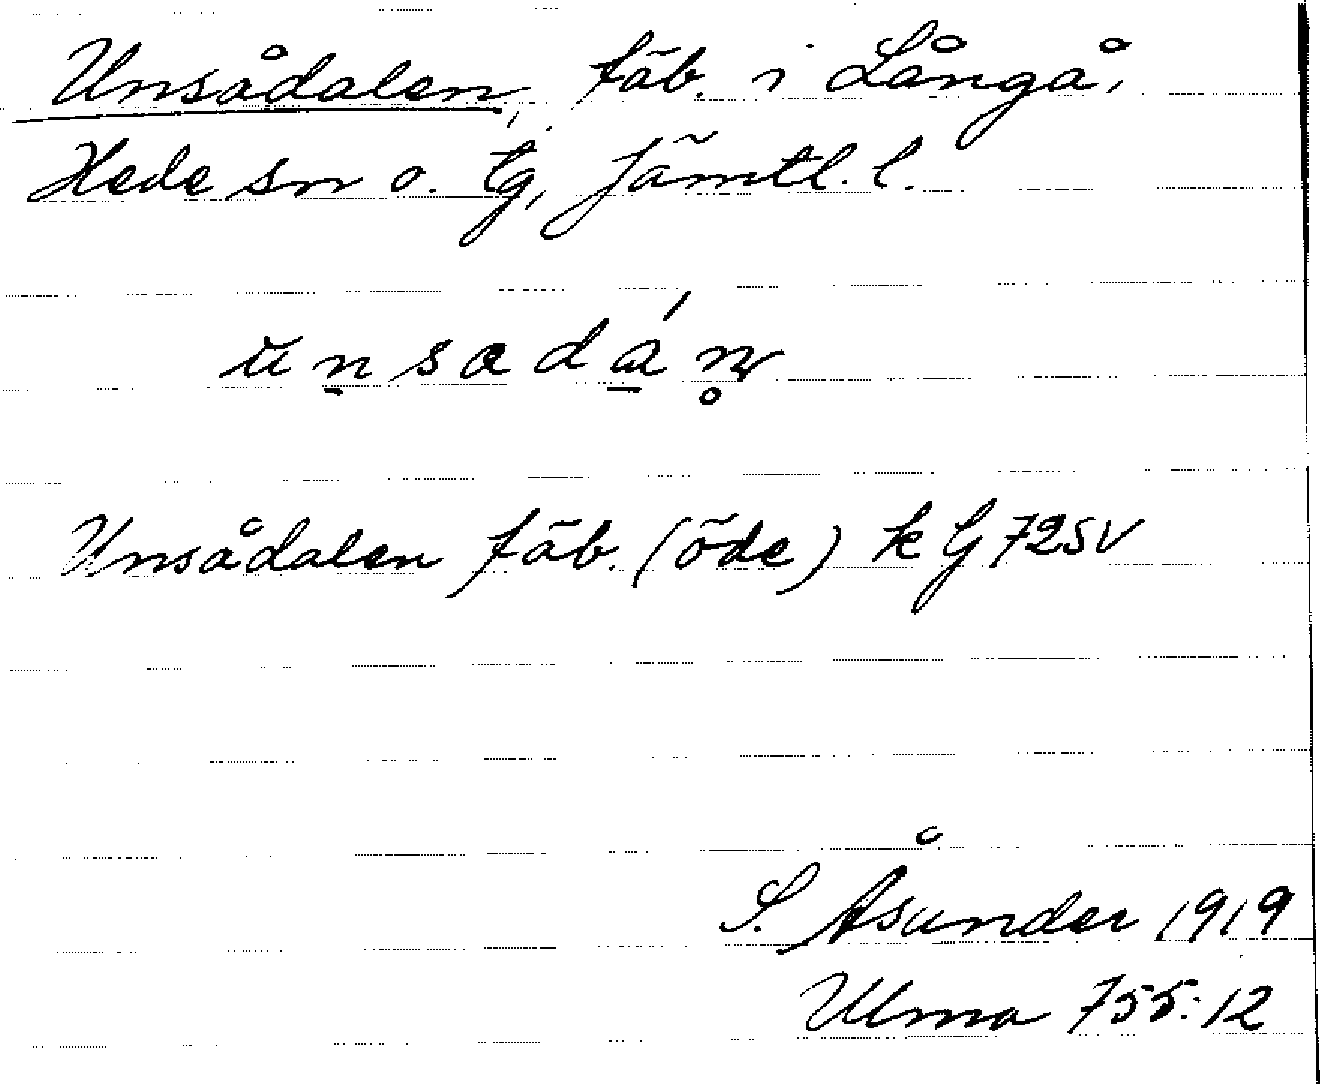 Unsådalen, fäb. i Långå,
Hede sn o. tg, Jämtl. l.
ŭn̠sadá̠n̥
Unsådalen fäb. (öde) k G 725V
S. Åsander 1919
Ulma 755:12